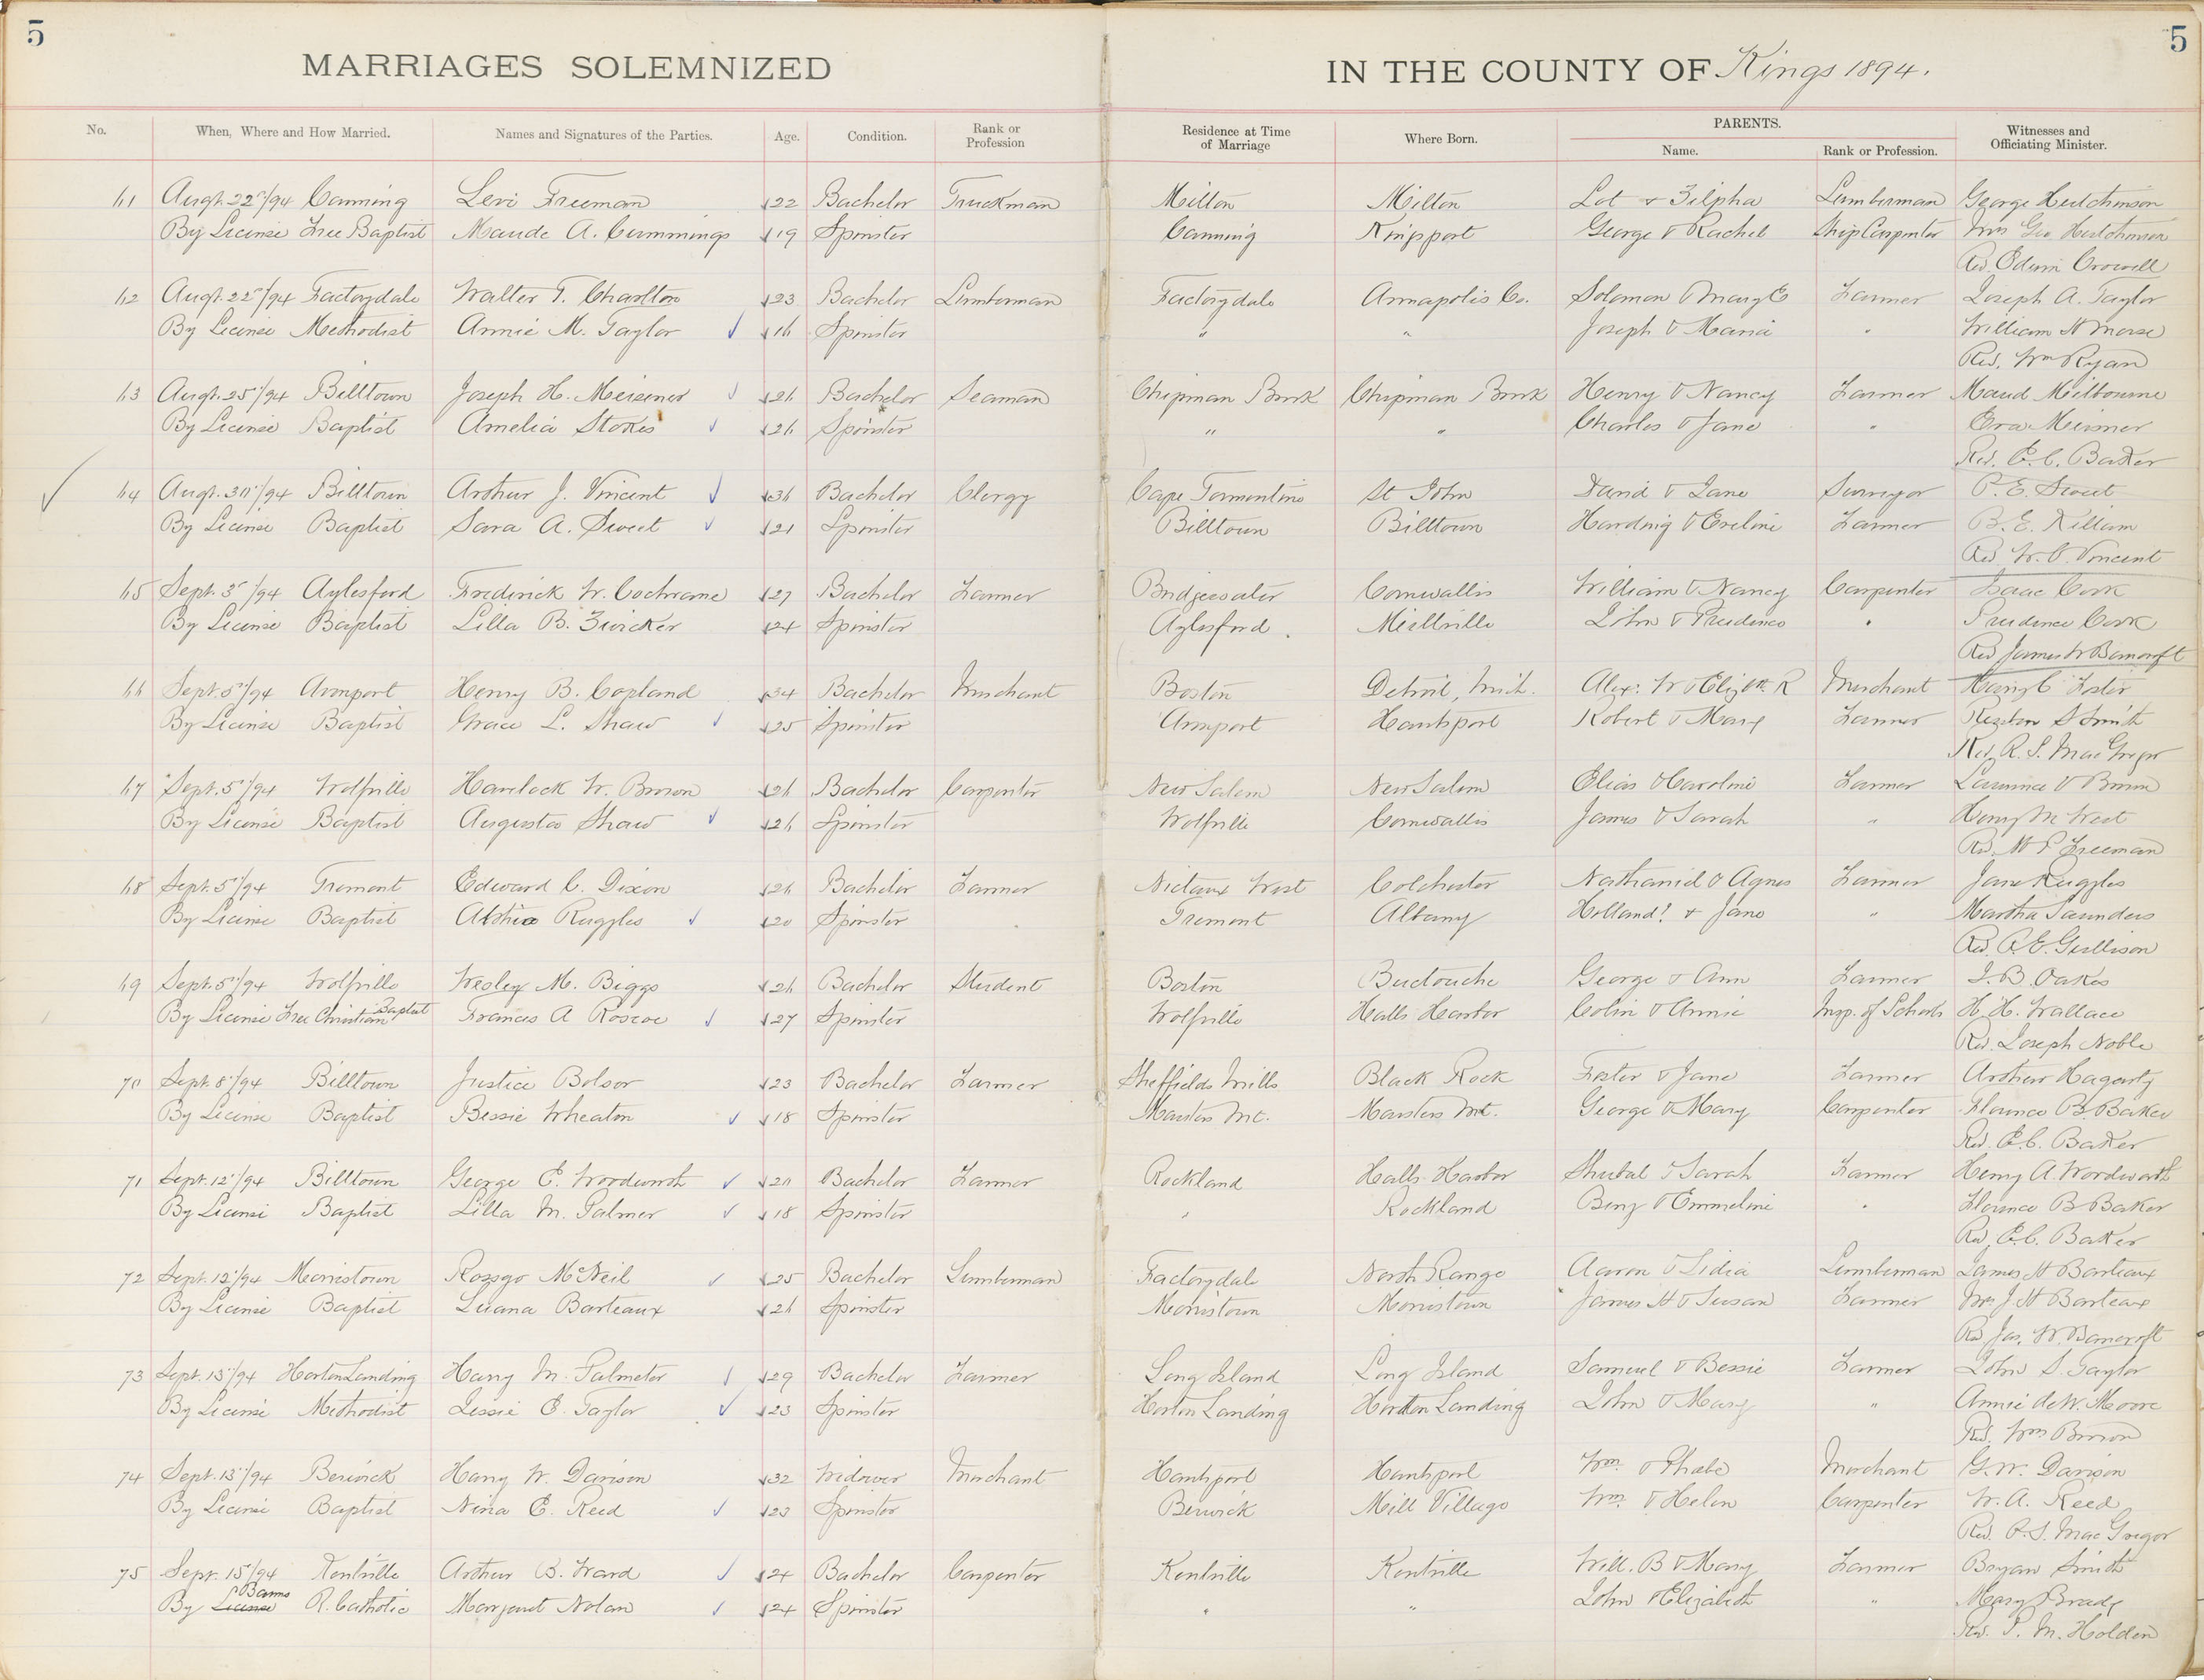 5
5
MARRIAGES SOLEMNIZED
IN THE COUNTY OF Kings 1894.
No. When, Where and How Married. Names and Signatures of the Parties. Age. Condition. Rank or Profession Residence at Time of Marriage Where Born. PARENTS. Name. Rank or Profession. Witnesses and Officiating Minister.
61 Augt. 22"/94 Canning Levi Freeman 22 Bachelor Truckman Milton Milton Lot & Zilpha Lumberman George Hutchinson
By License Free Baptist Maude A. Cummings 19 Spinster Canning Kingsport George & Rachel Ship Carpenter Mrs Geo Hutchinson
Rev. Edwin Crowell
62 Augt. 22"/94 Factorydale Walter T. Charlton 23 Bachelor Lumberman Factorydale Annapolis Co. Solomon & Mary E Farmer Joseph A. Taylor
By License Methodist Annie M. Taylor 16 Spinster " " Joseph & Maria " William H Morse
Rev. Wm Ryan
63 Augt. 25"/94 Billtown Joseph H. Meisener 26 Bachelor Seaman Chipman Brook Chipman Brook Henry & Nancy Farmer Maud Milbourne
By License Baptist Amelia Stokes 26 Spinster " " Charles & Jane " Ora Meisner
Rev. E. C. Baker
64 Augt. 30"/94 Billtown Arthur J. Vincent 36 Bachelor Clergy Cape Tormentine St John David & Jane Surveyor P. E. Sweet
By License Baptist Sara A. Sweet 21 Spinster Billtown Billtown Harding & Eveline Farmer B. E. Killam
Rev W. O. Vincent
65 Sept. 3"/94 Aylesford Frederick W. Cochrane 27 Bachelor Farmer Bridgewater Cornwallis William & Nancy Carpenter Isaac Cook
By License Baptist Lilla B. Zwicker 24 Spinster Aylesford. Millville John & Prudence " Prudence Cook
Rev James W Bancroft
66 Sept. 5"/94 Avonport Henry B. Copland 34 Bachelor Merchant Boston Detroit, Mich. Alex: W & Elizth R Merchant Harry C Foster
By License Baptist Grace L. Shaw 25 Spinster Avonport Hantsport Robert & Mary Farmer S Smith
Rev. R. S. MacGregor
67 Sept. 5"/94 Wolfville Havelock W. Brown 26 Bachelor Carpenter New Salem New Salem Elias & Caroline Farmer Lawrence V Brown
By License Baptist Augusta Shaw 26 Spinster Wolfville Cornwallis James & Sarah " Henry M West
Rev. W P Freeman
68 Sept. 5"/94 Tremont Edward C. Dixon 26 Bachelor Farmer Nictaux West Colchester Nathaniel & Agnes Farmer Jane Ruggles
By License Baptist Ruggles 20 Spinster Tremont Albany Holland? & Jane " Martha Saunders
Rev R. E. Gullison
69 Sept. 5"/94 Wolfville Wesley M. Biggs 26 Bachelor Student Boston Buctouche George & Ann Farmer I. B. Oakes
By License Free Christian Baptist Frances A Roscoe 27 Spinster Wolfville Halls Harbor Colin & Annie Insp. of Schools H H. Wallace
Rev. Joseph Noble
70 Sept. 8"/94 Billtown Justice Bolsor 23 Bachelor Farmer Sheffields Mills Black Rock Foster & Jane Farmer Arthur Hagerty
By License Baptist Bessie Wheaton 18 Spinster Marsters Mt. Marsters Mt. George & Mary Carpenter Florence B. Baker
Rev. E. C. Baker
71 Sept. 12"/94 Billtown George E. Woodworth 20 Bachelor Farmer Rockland Halls Harbor Shubal & Sarah Farmer Henry A. Woodworth
By License Baptist Lilla M. Palmer 18 Spinster " Rockland Benj & Emmeline " Florence B Baker
Rev. E. C. Baker
72 Sept. 12"/94 Morristown McNeil 25 Bachelor Lumberman Factorydale North Range Aaron & Lidia Lumberman James H Barteaux
By License Baptist Luana Barteaux 26 Spinster Morristown Morristown James H & Susan Farmer Mrs J. H Barteaux
Rev Jas. W. Bancroft
73 Sept. 13"/94 Horton Landing Harry M. Palmeter 29 Bachelor Farmer Long Island Long Island Samuel & Bessie Farmer John S. Taylor
By License Methodist Jessie E. Taylor 23 Spinster Horton Landing Horton Landing John & Mary " Annie deW. Moore
Rev. Wm Brown
74 Sept. 13"/94 Berwick Harry W. Davison 32 Widower Merchant Hantsport Hantsport Wm. & Phœbe Merchant G. W. Davison
By License Baptist Nina E. Reed 23 Spinster Berwick Mill Village Wm. & Helen Carpenter W. A. Reed
Rev. R. S. MacGregor
75 Sept. 15"/94 Kentville Arthur B. Ward 24 Bachelor Carpenter Kentville Kentville Will. B & Mary Farmer Bryan Smith
By License Banns R. Catholic Margaret Nolan 24 Spinster " " John & Elizabeth " Mary Brady
Rev. P. M. Holden